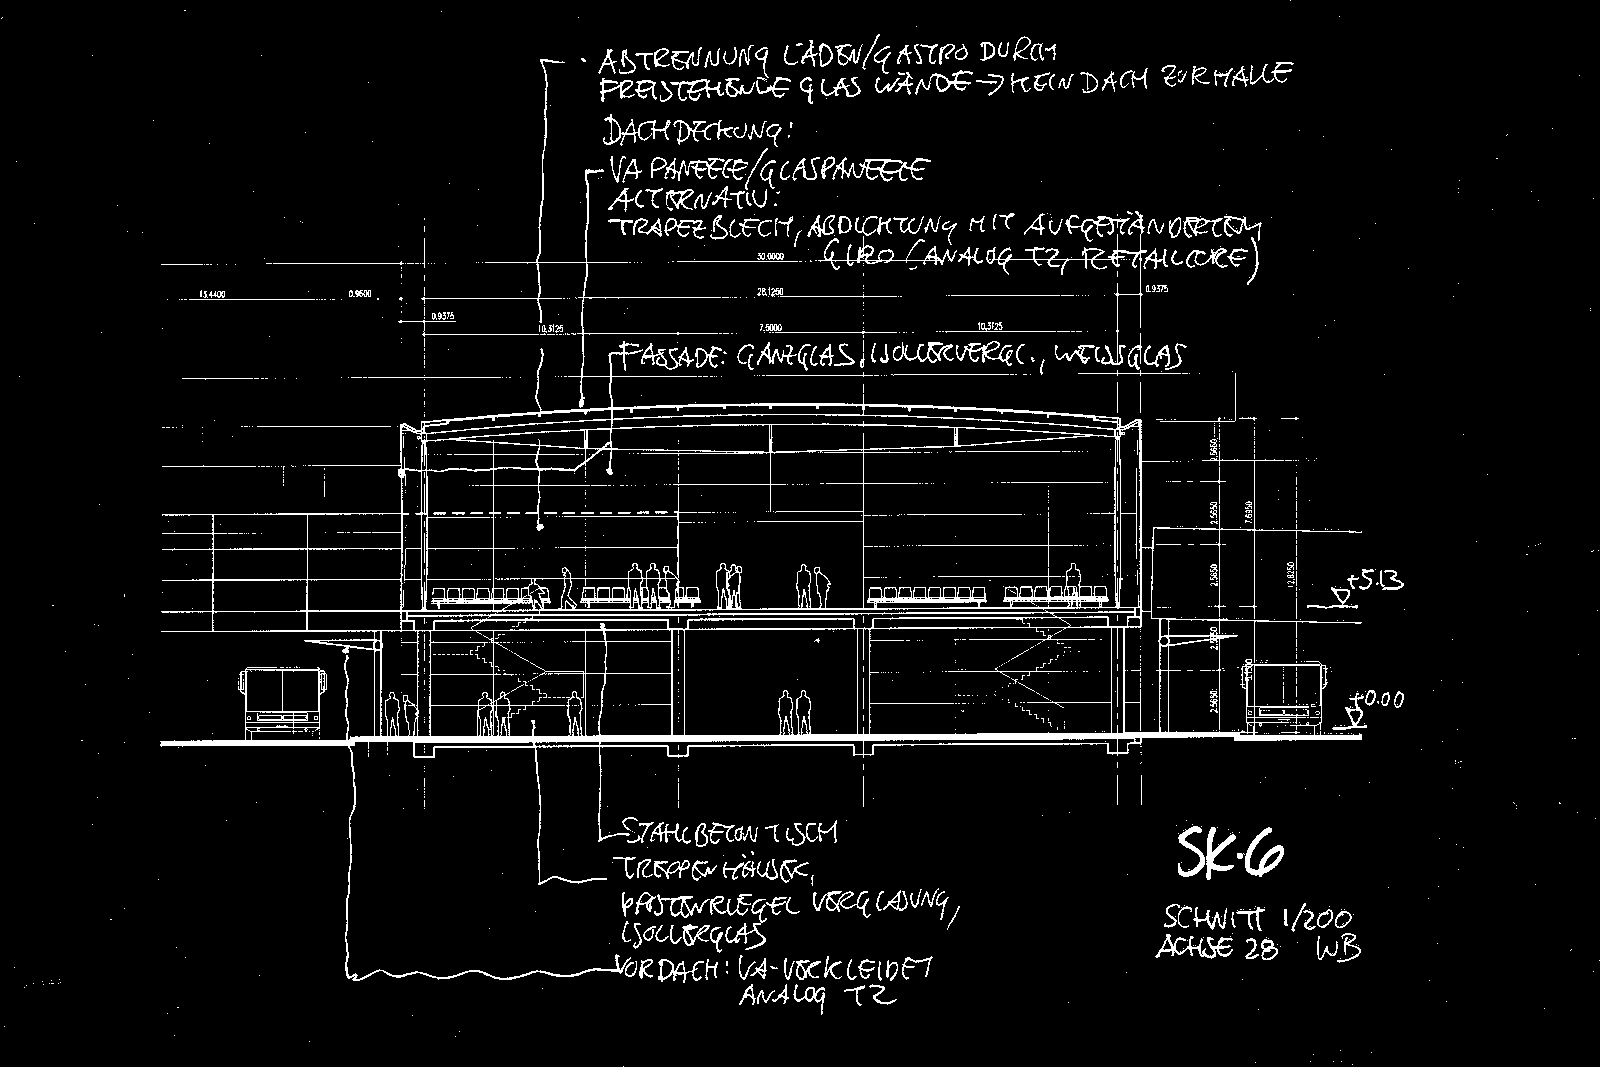 ABTRENNUNG LÄDEN/GASTRO DURCH
FREISTEHENDE GLAS WÄNDE → KEIN DACH ZUR HALLE
DACHDECKUNG:
VA PANEELE/GLASPANEELE
ALTERNATIV:
TRAPEZBLECH, ABDICHTUNG MIT AUFGESTÄNDERTEM
(ANALOG T2, RETAILCORE)
30.0000
13.4400 0.9600 28.1250 0.9375
0.9375
10.3125 7.5000 10.3125
FASSADE: GANZGLAS, ISOLIERVERGL., WEISSGLAS
2.5650
2.5650
7.6950
2.5650
12.8250
+5.13
2.5650
2.5650
+0.00
STAHLBETON TISCH
TREPPENHÄUSER,
PFOSTENRIEGEL VERGLASUNG,
ISOLIERGLAS
VORDACH: VA-VERKLEIDET
ANALOG T2
SK·6
SCHNITT 1/200
ACHSE 28 WB